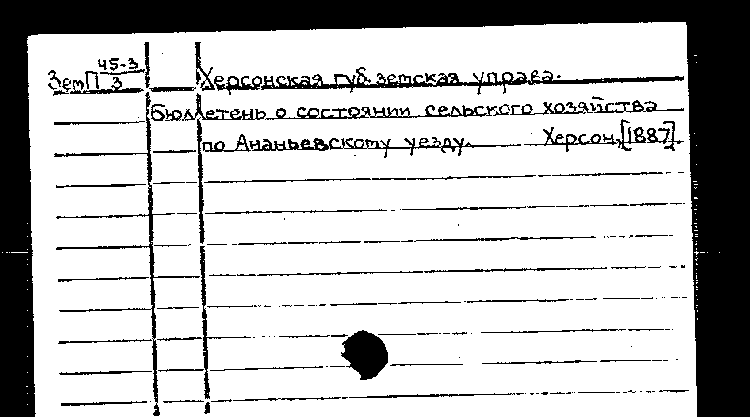 ЗемП 45-3/3 Херсонская губ. земская управа.
бюллетень о состоянии сельского хозяйства
по Ананьевскому уезду. Херсон, [1887].